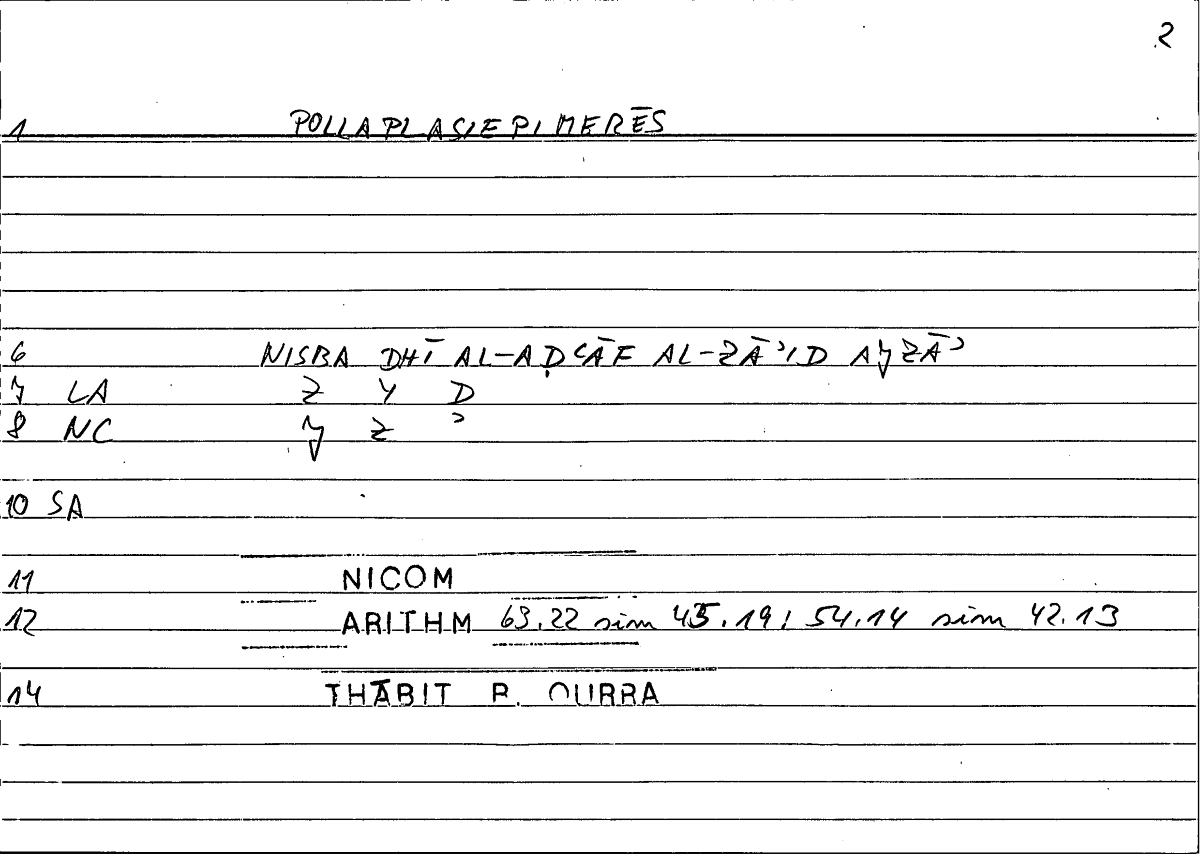 2
1 POLLAPLASIEPIMERĒS
6 NISBA DHĪ AL-AḌʿĀF AL-ZĀʾID AǰZĀʾ
7 LA Z Y D
8 NC ǰ Z ʾ
10 SA
11 NICOM
12 ARITHM 63.22 sim 45.19; 54.14 sim 42.13
14 THĀBIT B. QURRA